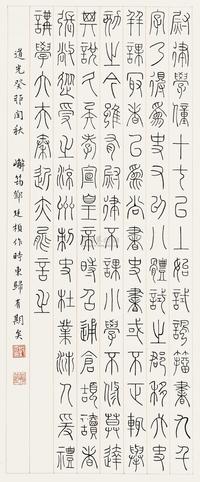 尉律學僮十七已上始試諷籀書九千
字乃得為吏又以八體試之郡移太史
并課最者以為尚書史書或不正輒舉
劾之今雖有尉律不課小學不修莫達
其說久矣孝宣皇帝時召通倉頡讀者
張敞從受之涼州刺史杜業沛人爰禮
講學大夫秦近亦能言之
道光癸卯閏秋 嶰筠鄧廷楨作時東歸有期矣